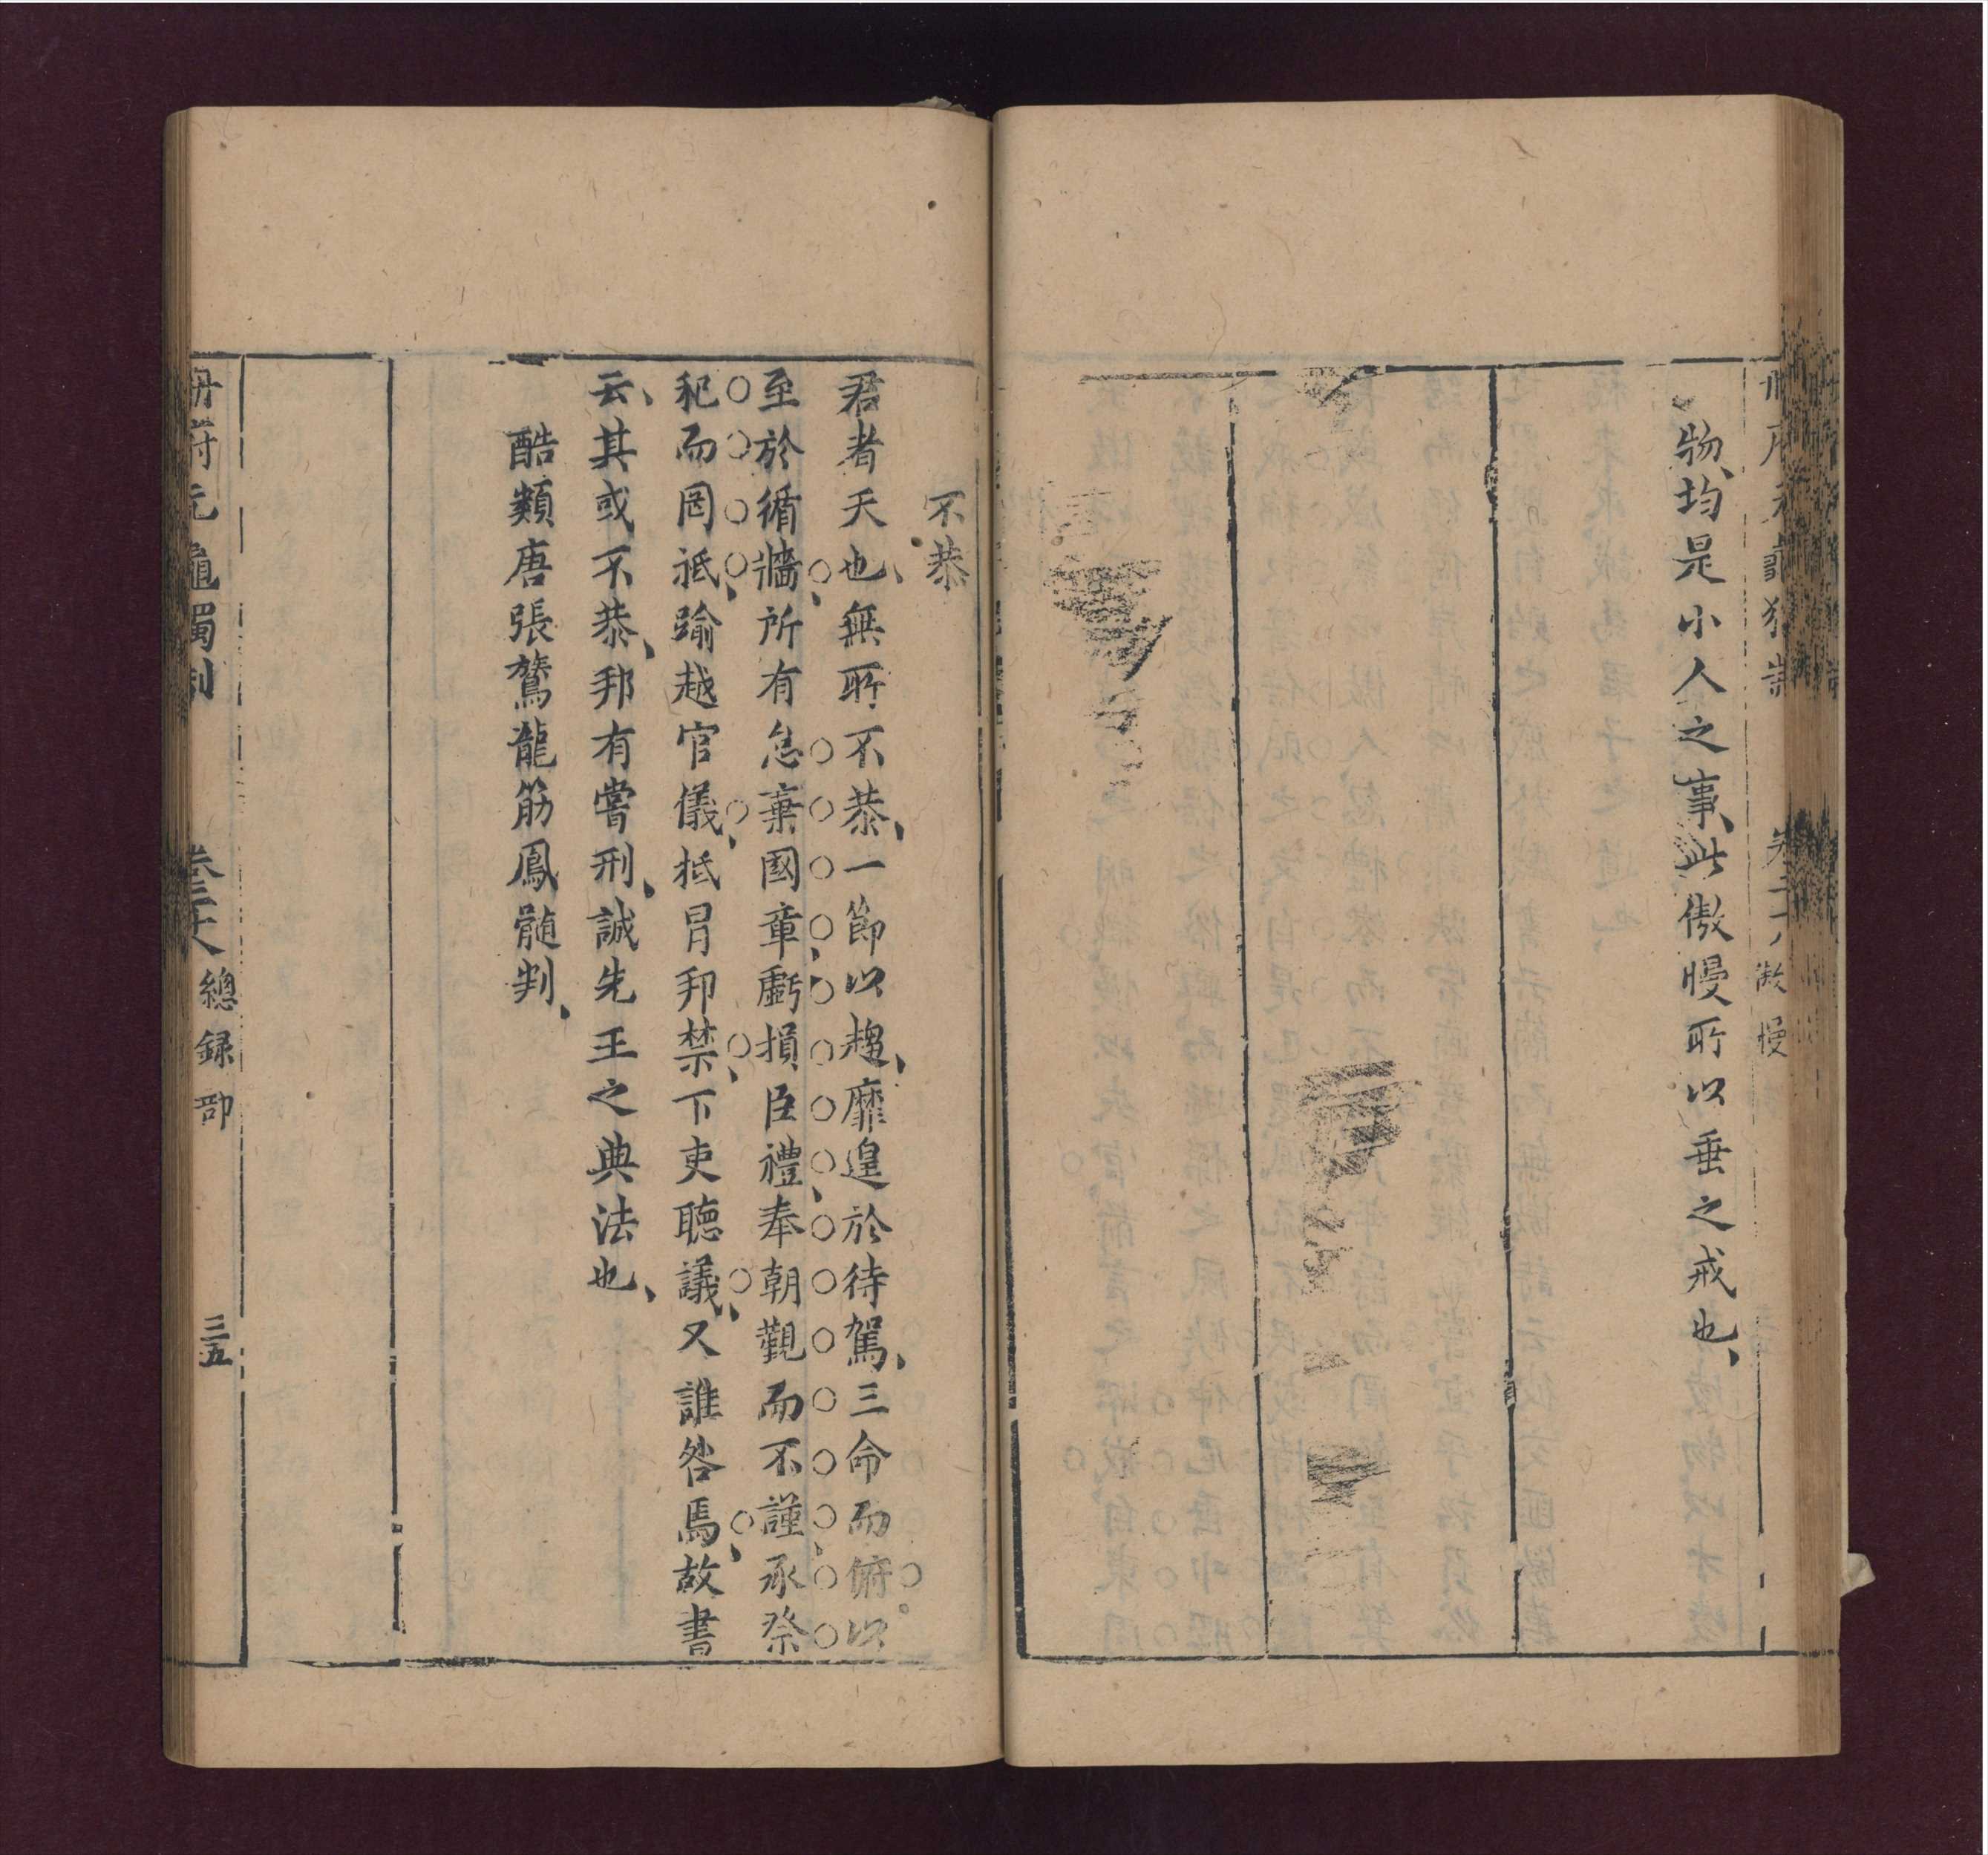 物、均是小人之事、此傲慢所以垂之戒也、
傲慢
不恭
君者天也、無所不恭、一節以趨、靡遑於待駕、三命而俯、以
至於循牆、所有怠棄國章、虧損臣禮、奉朝覲而不謹、承祭
祀而罔祗、踰越官儀、抵冒邦禁、下吏聽議、又誰咎焉、故書
云、其或不恭、邦有嘗刑、誠先王之典法也、
酷類唐張鷟龍筋鳳髄判、
冊府元龜獨制
卷二十八 總録部
三五